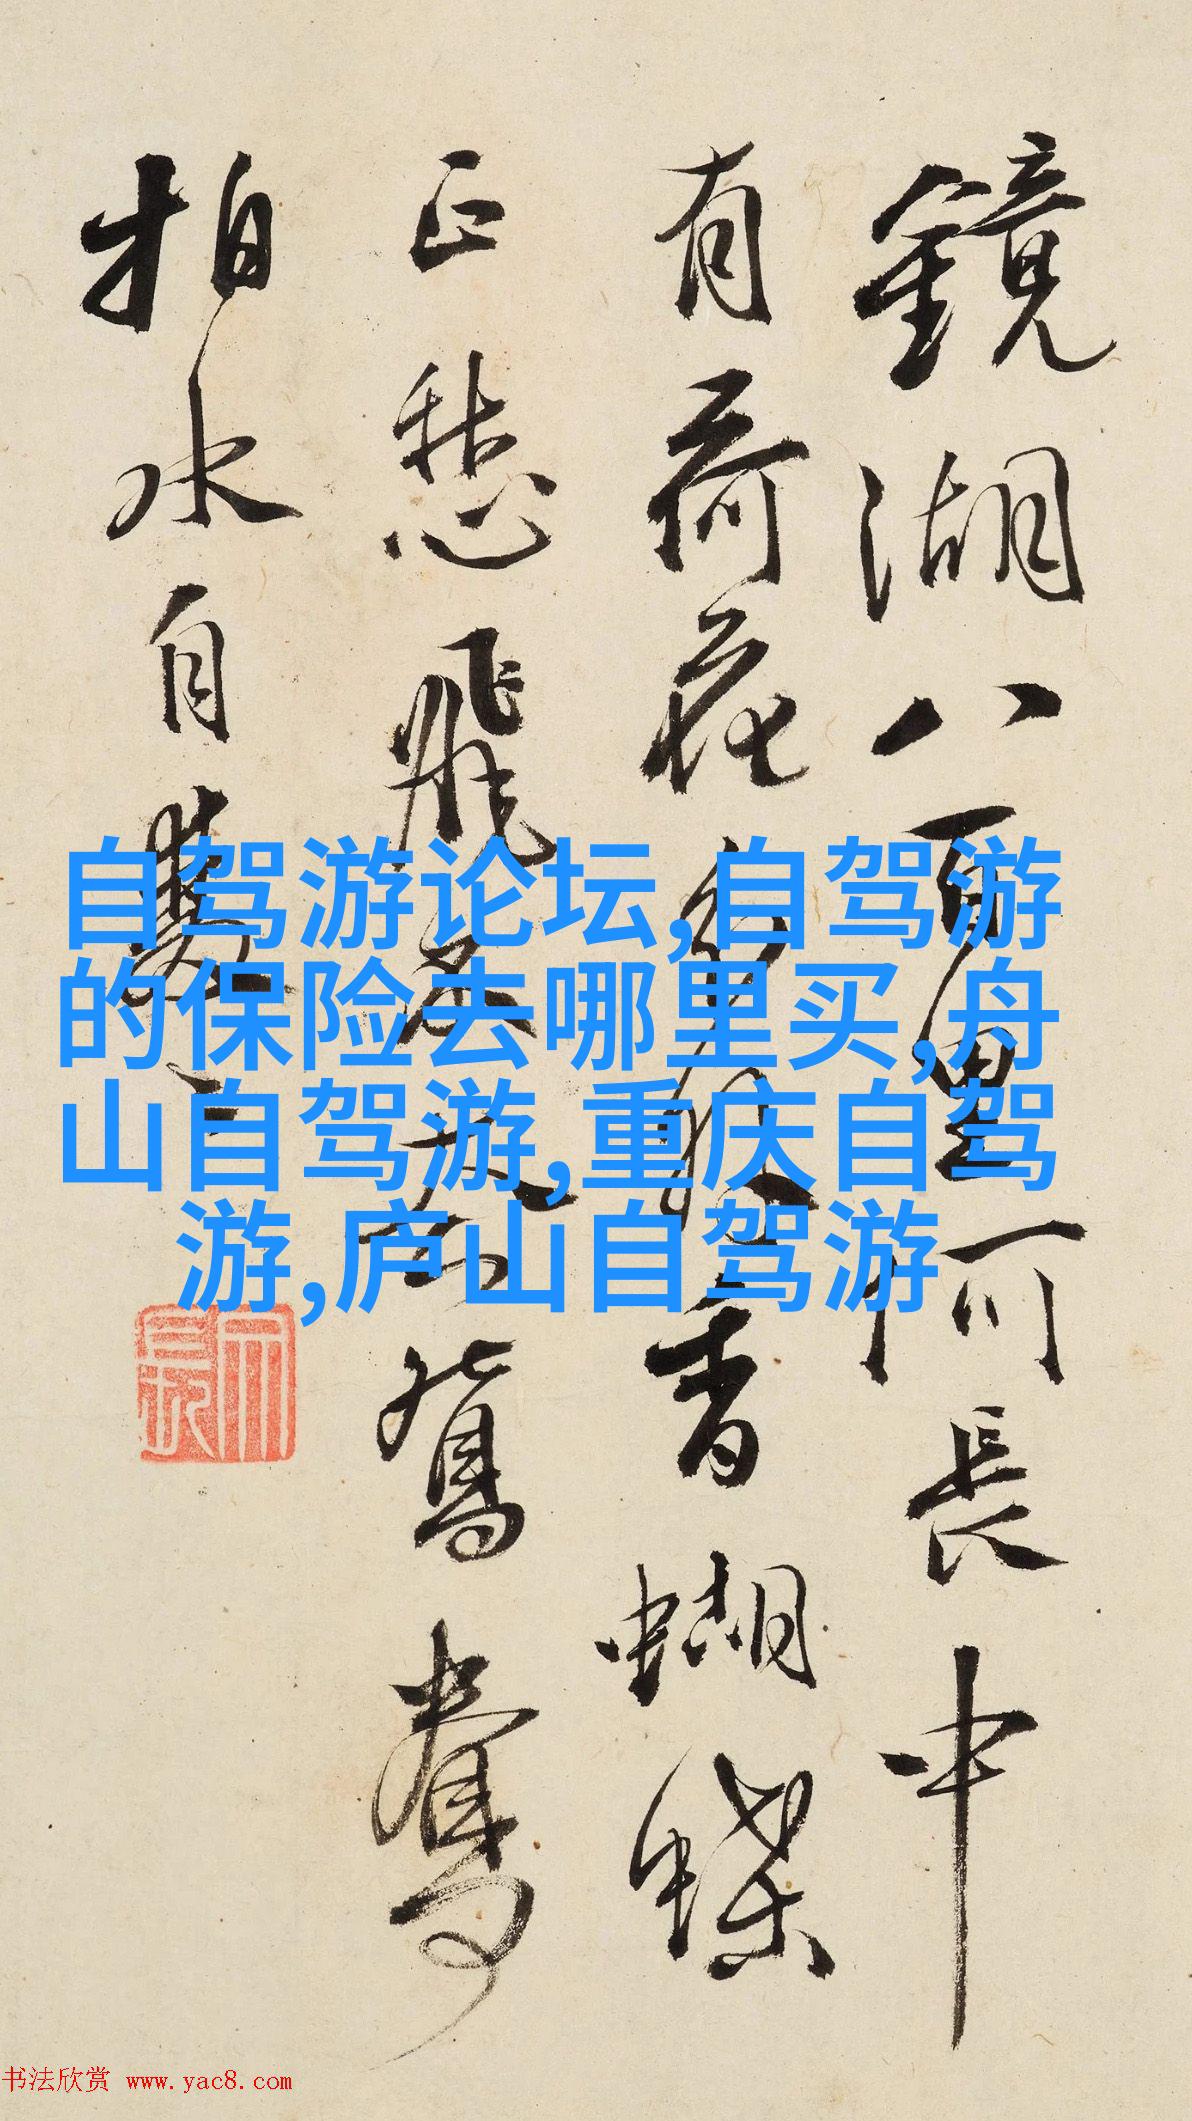 鏡湖八百里何長中
有荷花分外香蝴蝶
正愁飛不去鴛鴦
拍水自雙雙
自驾游论坛,自驾游
的保险去哪里买,舟
山自驾游,重庆自驾
游,庐山自驾游
书法欣赏 www.yac8.com